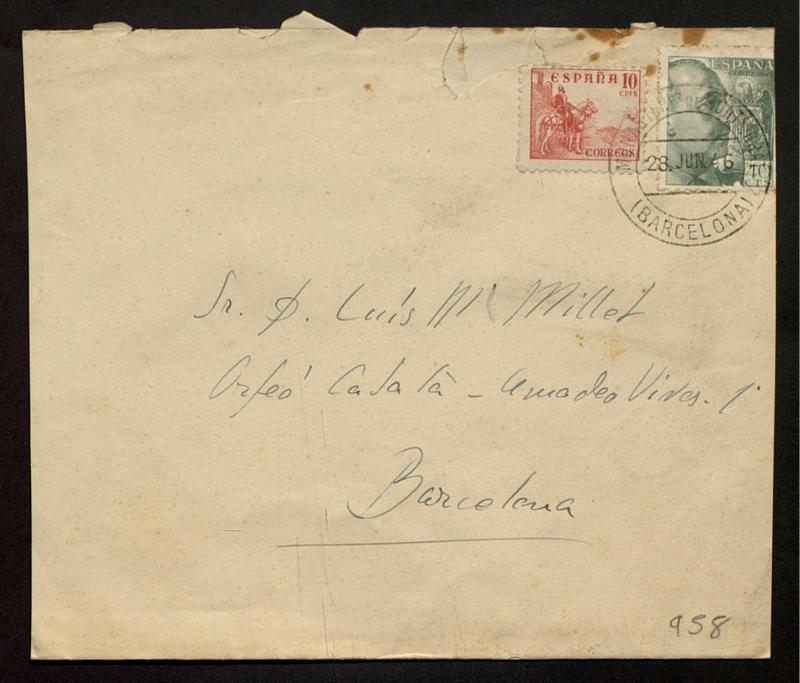 ESPAÑA 10
CTS
CORREOS
ESPAÑA
CORREOS
40
CTS
28 JUN. 46
(BARCELONA)
Sr. D. Luís Mª Millet
Orfeó Català - Amadeo Vives - 1
Barcelona
958